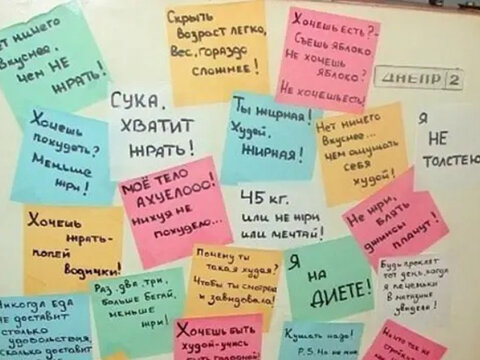 ет ничего
вкуснее,
чем НЕ
ЖРАТЬ!
Скрыть
возраст легко,
Вес, гораздо
сложнее!
Хочешь есть? -
Съешь яблоко
Не хочешь
яблоко?
Не хочешь есть!
ДНЕПР 2
СУКА,
ХВАТИТ
ЖРАТЬ!
Ты жирная!
Худей,
ЖИРНАЯ!
Нет ничего
Вкуснее...
чем ощущать
себя
худой!
Я
НЕ
ТОЛСТЕЮ
Хочешь
похудеть?
Меньше
жри!
МОЁ ТЕЛО
АХУЕЛООО!
Нихуя не
похудело...
45 кг.
или не жри
или мечтай!
Не жри,
блять
джинсы
плачут!
Хочешь
жрать-
попей
водички!
Почему ты
такая худая?
Чтобы ты смотрела
и завидовала!
Я
на
ДИЕТЕ!
Будь проклят
тот день, когда
я печеньки
в натуре
увидела!
Раз, два, три,
больше бегай,
меньше
жри!
Никогда еда
не доставит
столько
удовольствия,
сколько доставит
Хочешь быть
худой-учись
быть голодной!
Кушать надо!
P.S. Но не мне
Ничто так не